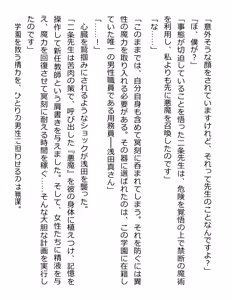 「意外そうな顔をされていますけれど、それって先生のことなんですよ？」
「ぼ、僕が？」
「事態が切迫していることを悟った二条先生は、危険を覚悟の上で禁断の魔術
を利用し、私よりも先に悪魔を召喚したのです」
「な……」
「このままでは、自分自身も含めて冥刻に呑まれてしまう。それを防ぐには異
性の魔力を取り入れる必要がある。その器に選ばれたのは、この学園に在籍し
ていた唯一の男性職員である用務員――浅田真さん」
心臓を鷲掴みにされるようなショックが真田を襲った。
「二条先生は苦肉の策で、呼び出した『悪魔』を彼の身体に植えつけ、記憶を
操作して新任教師という肩書きを与えました。そして、女性たちに精液を与
え、魔力を回復させて冥刻に耐える時間を稼ぐ……そんな大胆な計画を実行し
たのです」
学園を救う胃力を、ひとりの男性に担わせるのは無謀。